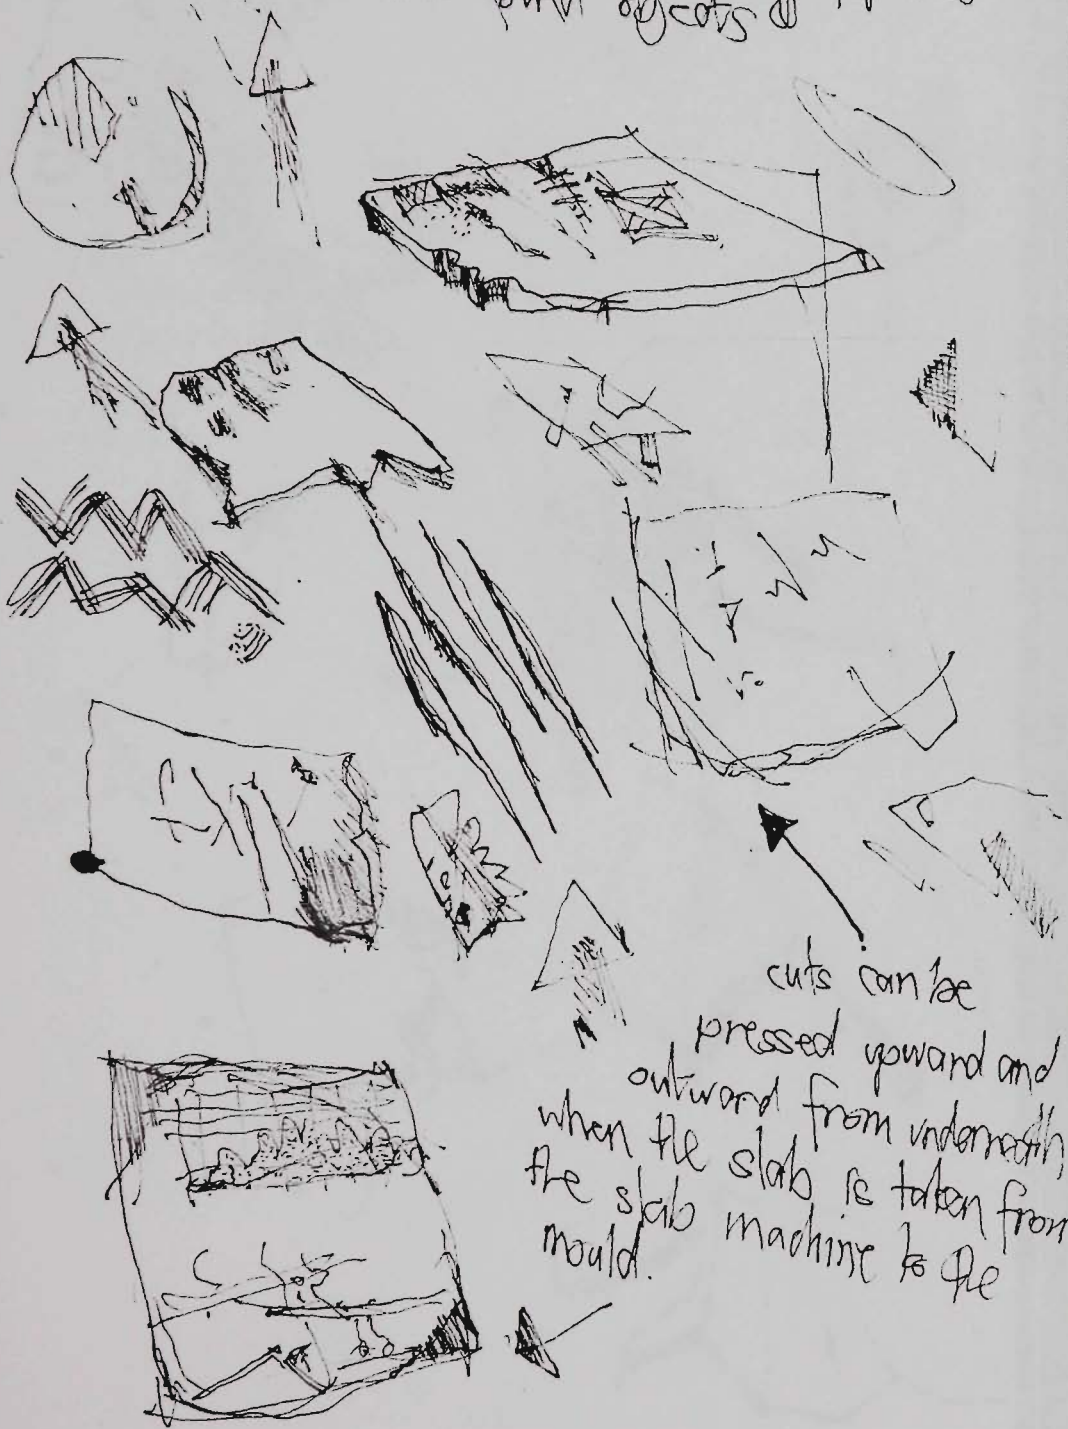 objects
cuts can be
pressed upward and
outward from underneath
when the slab is taken from
the slab machine to the
mould.